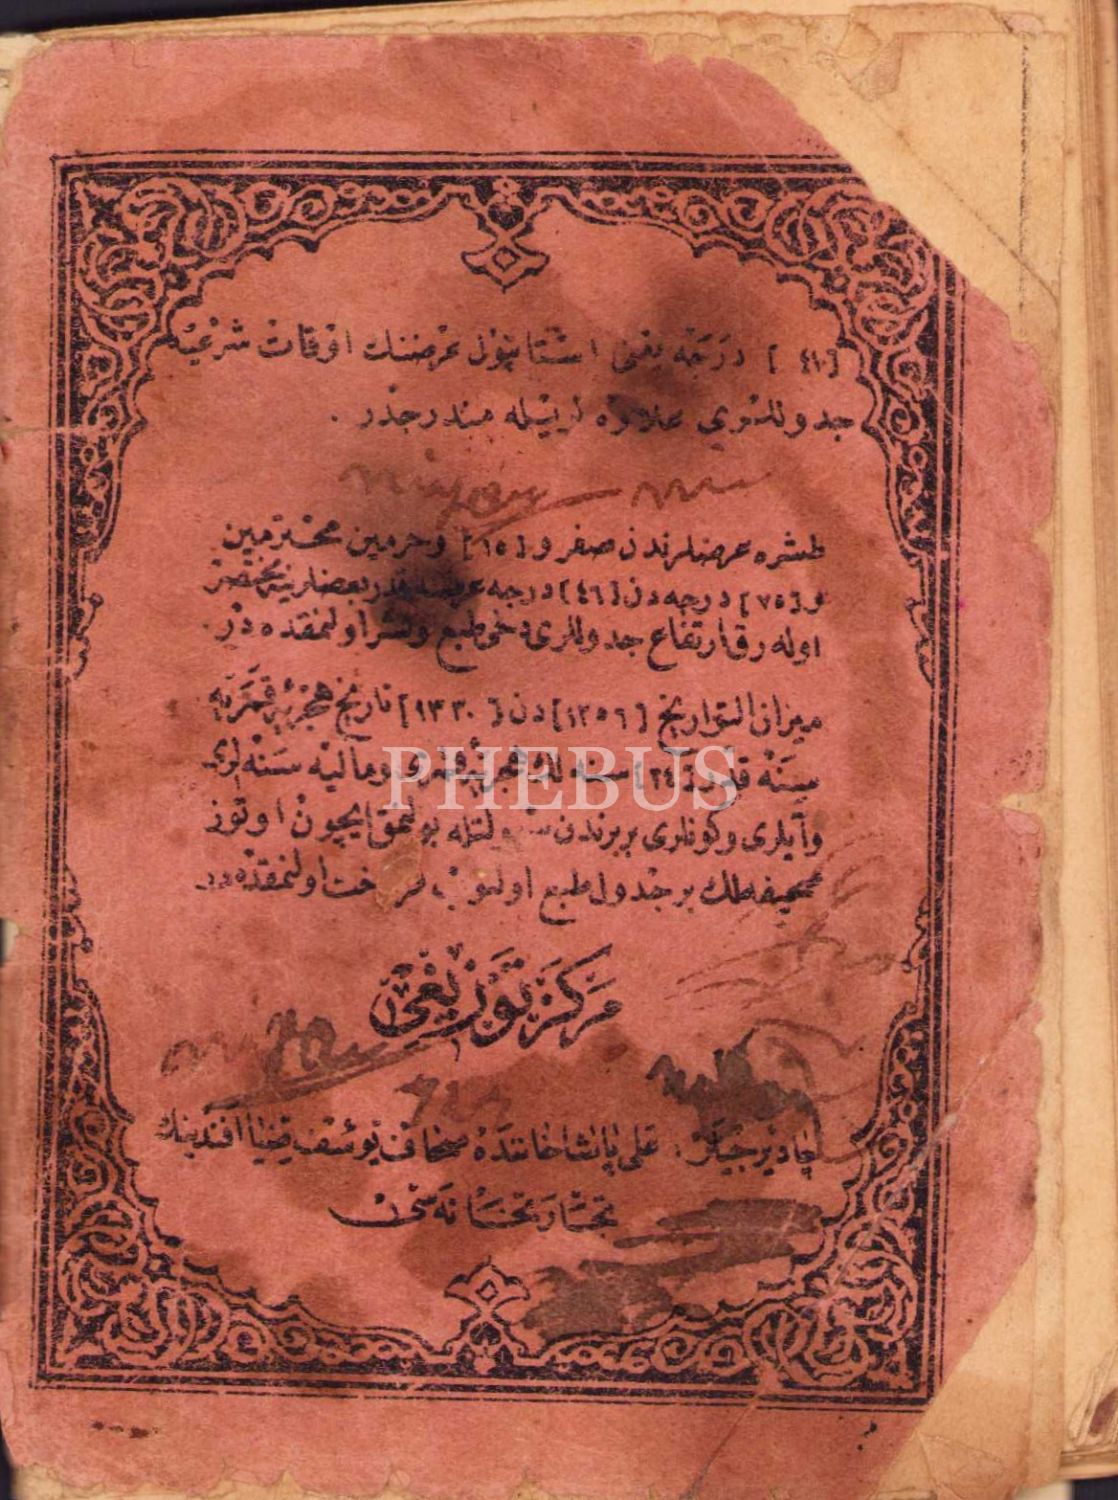 [٤١] درجه يعنی استانبول عرضنك اوقات شرعيه
جدوللری علاوه لريله مندرجدر .
طشره عرضلرندن صفر و [١٥] و حرمين محترمين
و [٧٥] درجه دن [٤٦] درجه عرضه قدر بعضلرينه مختصر
اوله رق ارتفاع جدوللری دخی طبع و نشر اولنمقده در .
ميزان التواريخ [١٢٥٦] دن [١٣٣٠] تاريخ هجريه قمريه
سنه قدر [٧٤] سنه لك هجريه قمری و ماليه سنه لری
و آيلری و كونلری بربرندن سهولتله بولنمق ايچون اوتوز
صحيفه لك بر جدول طبع اولنوب فروخت اولنمقده در .
مركز توزيعی
چاديرجيلر : علی پاشا خاننده صحاف يوسف ضيا افندينك
تجارتخانه سی
PHEBUS